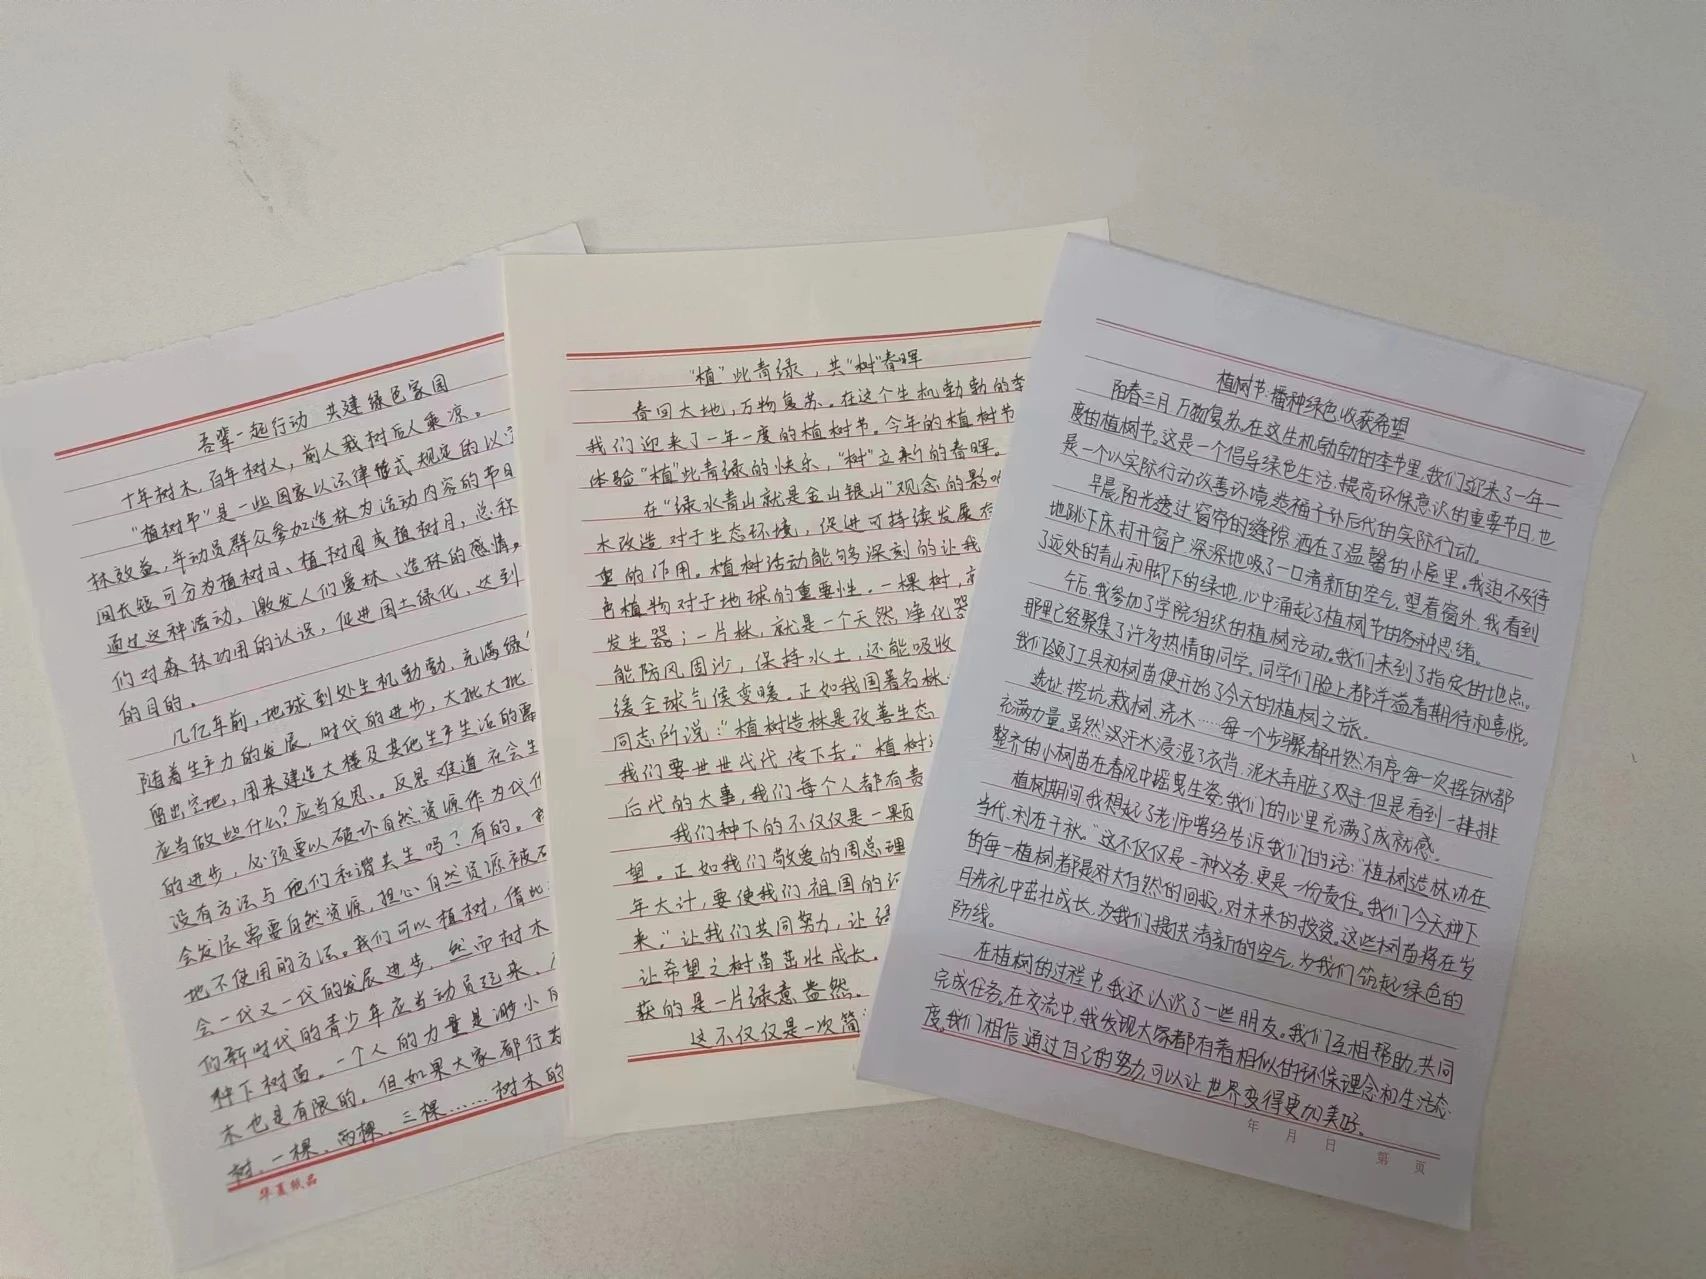 吾辈一起行动 共建绿色家园
十年树木,百年树人,前人栽树后人乘凉。
“植树节”是一些国家以法律模式规定的以
林效益,并动员群众参加造林为活动内容的节日
间长短可分为植树日、植树周或植树月,总称
通过这种活动,激发人们爱林、造林的感情,
们对森林功用的认识,促进国土绿化,达到
的目的。
几亿年前,地球到处生机勃勃,充满绿
随着生产力的发展,时代的进步,大批大批
留出空地,用来建造大楼及其他生产生活的需
应当做些什么?应当反思、反思难道在社会生
的进步,必须要以破坏自然资源作为代价
没有方法与他们和谐共生吗?有的。
会发展需要自然资源,担心自然资源被
地不使用的方法。我们可以植树,借此
会一代又一代的发展进步,然而树木
的新时代的青少年应当动员起来,
种下树苗。一个人的力量是渺小
木也是有限的,但如果大家都行
树,一棵、两棵、三棵……树木的
华夏纸品
“植”此青绿,共“树”春晖
春回大地,万物复苏。在这个生机勃勃的季
我们迎来了一年一度的植树节。今年的植树节
体验“植”此青绿的快乐,“树”立来的春晖。
在“绿水青山就是金山银山”观念的影响
木改造对于生态环境,促进可持续发展有
重的作用。植树活动能够深刻的让我
色植物对于地球的重要性。一棵树,
发生器;一片林,就是一个天然净化器
能防风固沙,保持水土,还能吸收
缓全球气候变暖。正如我国著名林
同志所说:“植树造林是改善生态
我们要世世代代传下去。”植树
后代的大事,我们每个人都有责
我们种下的不仅仅是一颗
望。正如我们敬爱的周总理
年大计,要使我们祖国的
来。”让我们共同努力,让绿
让希望之树苗茁壮成长。
获的是一片绿意盎然。
这不仅仅是一次简
植树节:播种绿色,收获希望
阳春三月,万物复苏。在这生机勃勃的季节里,我们迎来了一年一
度的植树节。这是一个倡导绿色生活,提高环保意识的重要节日,也
是一个以实际行动改善环境,造福子孙后代的实际行动。
早晨,阳光透过窗帘的缝隙,洒在了温馨的小屋里。我迫不及待
地跳下床,打开窗户,深深地吸了一口清新的空气。望着窗外,我看到
了远处的青山和脚下的绿地,心中涌起了植树节的各种思绪。
午后,我参加了学院组织的植树活动。我们来到了指定的地点。
那里已经聚集了许多热情的同学。同学们脸上都洋溢着期待和喜悦。
我们领了工具和树苗,便开始了今天的植树之旅。
选址,挖坑,栽树,浇水……每一个步骤都井然有序,每一次挥锹都
充满力量。虽然汉汗水浸湿了衣背,泥水弄脏了双手,但是看到一排排
整齐的小树苗在春风中摇曳生姿,我们的心里充满了成就感。
植树期间,我想起了老师曾经告诉我们的话:“植树造林,功在
当代,利在千秋。”这不仅仅是一种义务,更是一份责任。我们今天种下
的每一植树都是对大自然的回报,对未来的投资。这些树苗将在岁
月洗礼中茁壮成长,为我们提供清新的空气,为我们筑起绿色的
防线。
在植树的过程中,我还认识了一些朋友。我们互相帮助,共同
完成任务。在交流中,我发现大家都有着相似的环保理念和生活态
度。我们相信,通过自己的努力,可以让世界变得更加美好。
年 月 日 第 页